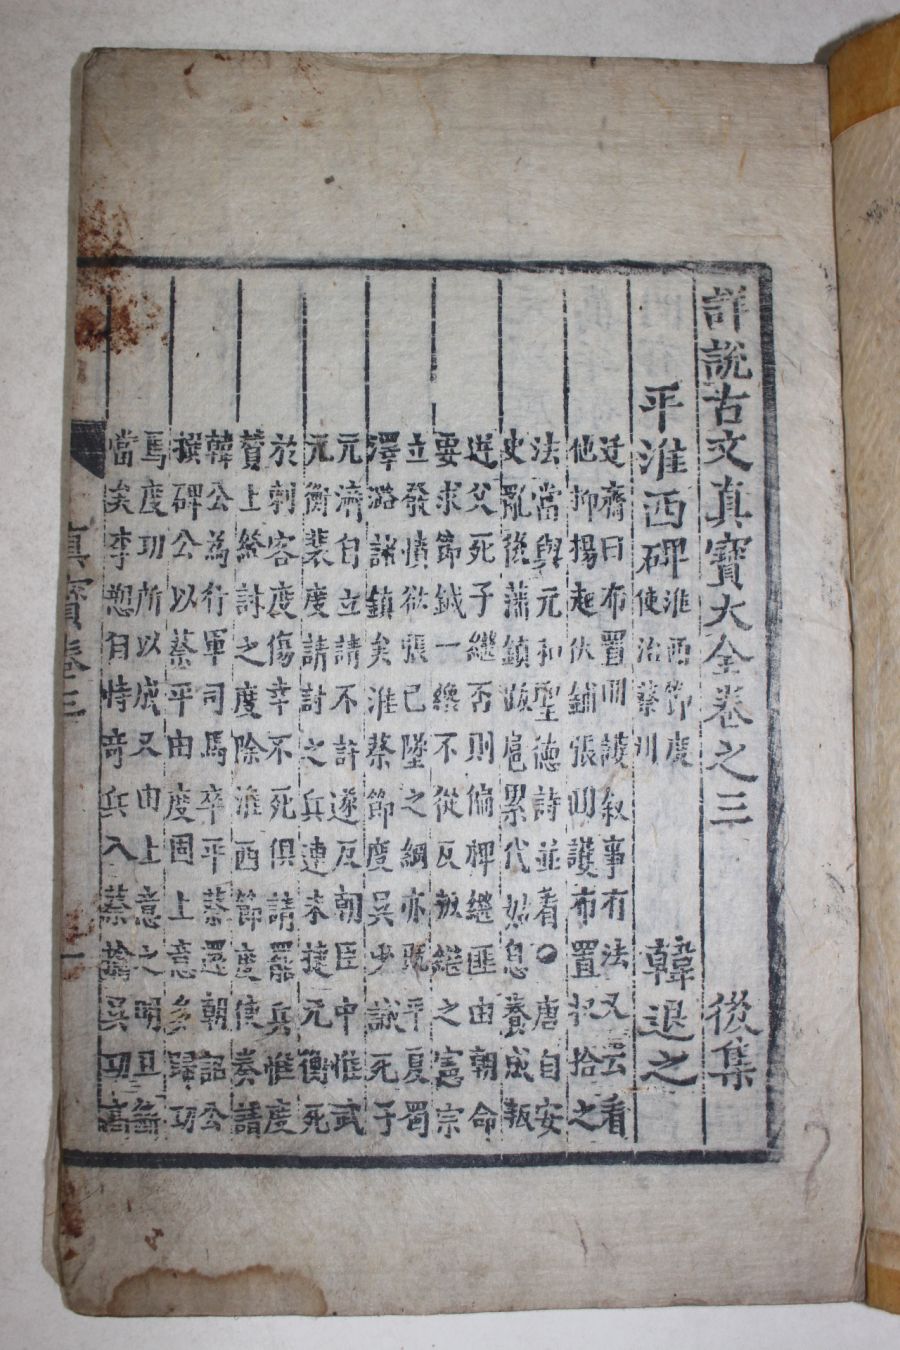 詳說古文真寶大全卷之三 後集
平淮西碑 淮西節度
使治蔡州 韓退之
迂齋曰布置回護叙事有法又云看
他抑揚起伏鋪張回護布置收拾之
法當與元和聖德詩並看○唐自安
史亂後藩鎮跋扈累代姑息養成叛
逆父死子繼否則偏裨繼匪由朝命
要求節鉞一不從反叛繼之憲宗
立發憤欲張已墜之綱亦旣平夏蜀
澤潞諸鎮矣淮蔡節度吳少誠死子
元濟自立請不許遂反朝臣中惟武
元衡裴度請討之兵連未捷元衡死
於刺客度傷幸不死俱請罷兵惟度
贊上終討之度除淮西節度使奏請
韓公為行軍司馬卒平蔡還朝詔公
撰碑公以蔡平由度固上意多歸功
焉度功所以成又由上意之明且斷
當矣李愬自恃奇兵入蔡擒吳功高
真寶卷三 一